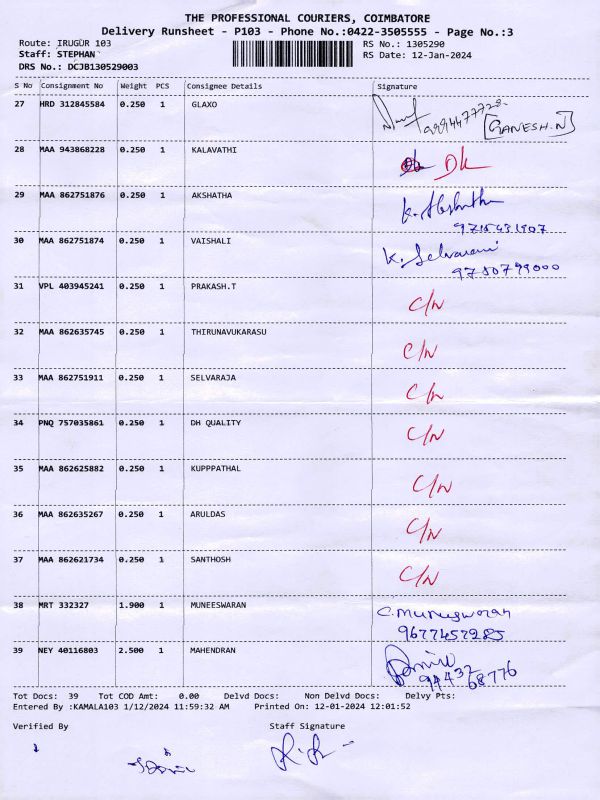 THE PROFESSIONAL COURIERS, COIMBATORE
Delivery Runsheet - P103 - Phone No.:0422-3505555 - Page No.:3
Route: IRUGUR 103 RS No.: 1305290
Staff: STEPHAN RS Date: 12-Jan-2024
DRS No.: DCJB130529003
S No Consignment No Weight PCS Consignee Details Signature
27 HRD 312845584 0.250 1 GLAXO 9994477728 [GANESH.N]
28 MAA 943868228 0.250 1 KALAVATHI DK
29 MAA 862751876 0.250 1 AKSHATHA K. Akshatha
9715431907
30 MAA 862751874 0.250 1 VAISHALI K. Selvarani
9750799000
31 VPL 403945241 0.250 1 PRAKASH.T C/N
32 MAA 862635745 0.250 1 THIRUNAVUKARASU C/N
33 MAA 862751911 0.250 1 SELVARAJA C/N
34 PNQ 757035861 0.250 1 DH QUALITY C/N
35 MAA 862625882 0.250 1 KUPPPATHAL C/N
36 MAA 862635267 0.250 1 ARULDAS C/N
37 MAA 862621734 0.250 1 SANTHOSH C/N
38 MRT 332327 1.900 1 MUNEESWARAN C. Muneesworan
9677457285
39 NEY 40116803 2.500 1 MAHENDRAN
94432
68776
Tot Docs: 39 Tot COD Amt: 0.00 Delvd Docs: Non Delvd Docs: Delvy Pts:
Entered By :KAMALA103 1/12/2024 11:59:32 AM Printed On: 12-01-2024 12:01:52
Verified By Staff Signature